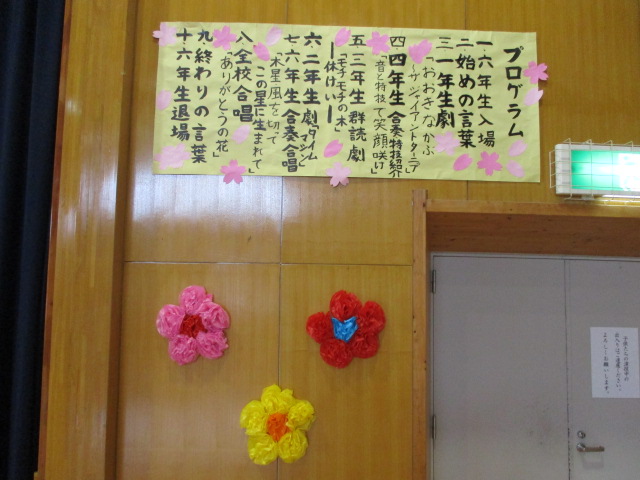 プログラム
一.六年生入場
二.始めの言葉
三.一年生劇
「おおきなかぶ
～ザジャイアントターニア」
四.四年生 合奏特技紹介
「音と特技で笑顔咲け」
五.三年生 群読劇
「モチモチの木」
―休けい―
六.二年生 劇「タイムマシン」
七.六年生 合奏合唱
「木星風を切って
この星に生まれて」
八.全校合唱
「ありがとうの花」
九.終わりの言葉
十.六年生退場
よろしくお願いします。